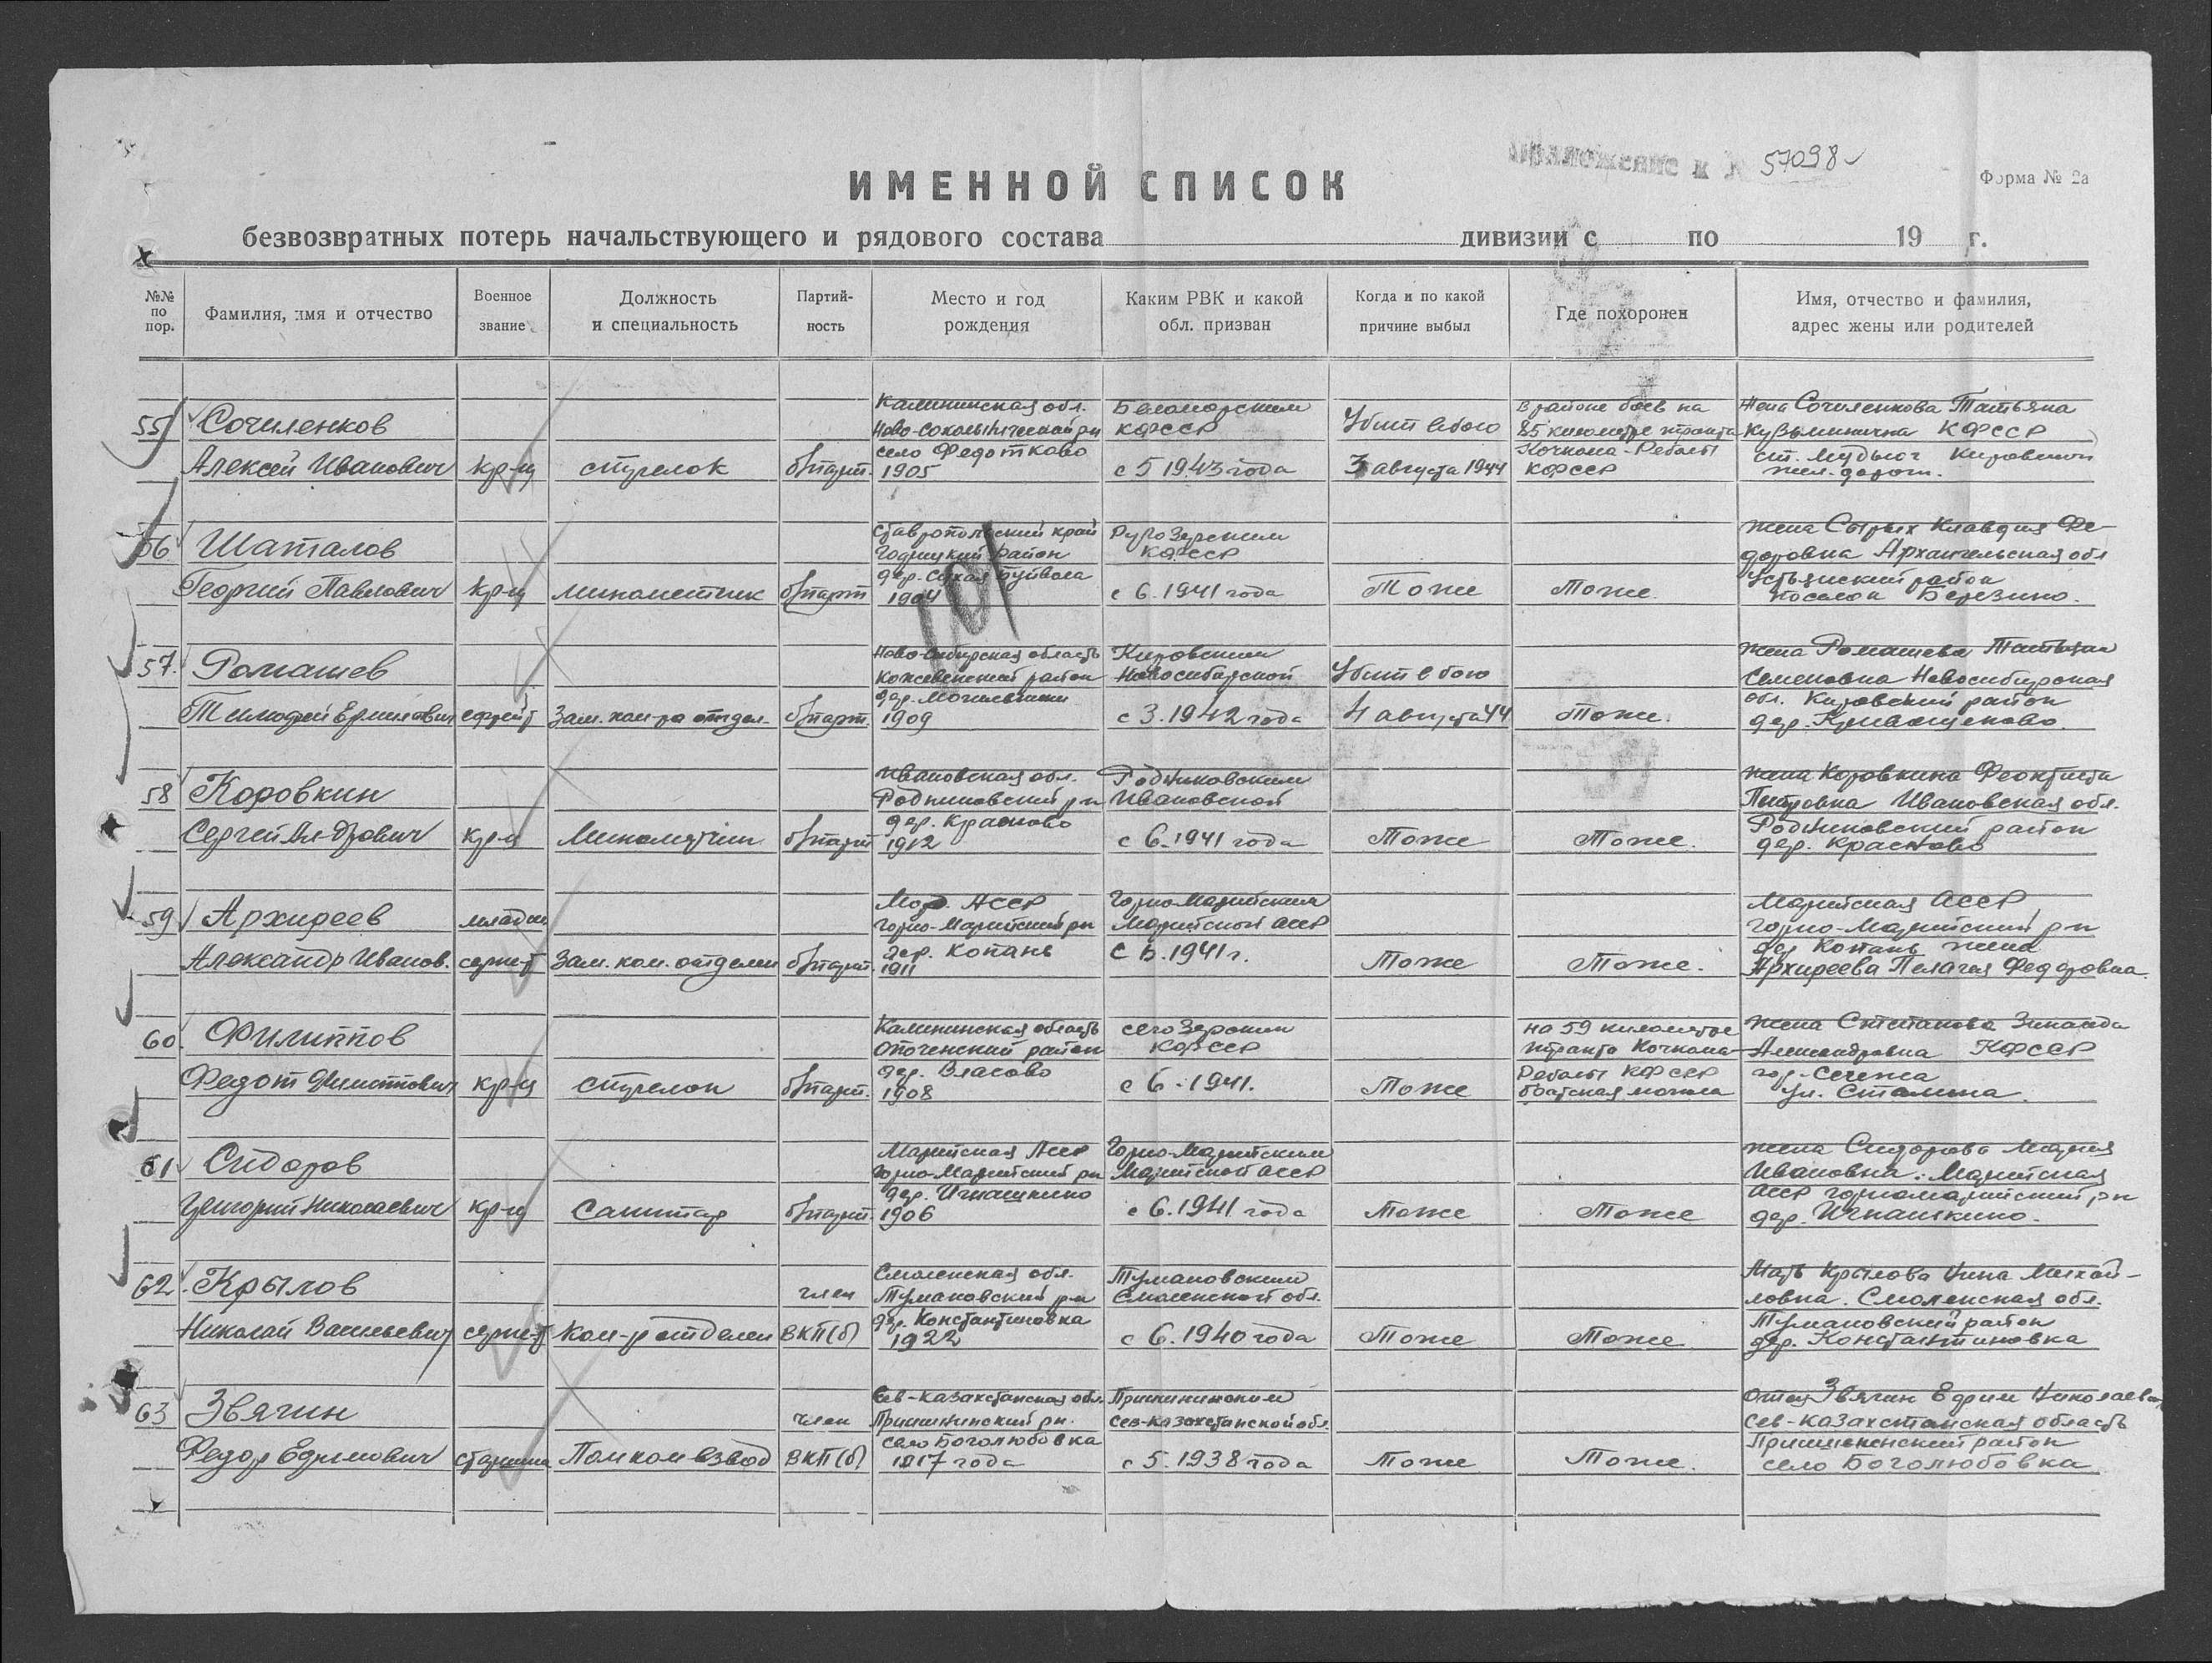 Приложение к № 57098
Форма № 2а
ИМЕННОЙ СПИСОК
безвозвратных потерь начальствующего и рядового состава дивизии с по 19 г.
№№ по пор.
Фамилия, имя и отчество
Военное звание
Должность и специальность
Партий-ность
Место и год рождения
Каким РВК и какой обл. призван
Когда и по какой причине выбыл
Где похоронен
Имя, отчество и фамилия, адрес жены или родителей
101
55 Сочиленков
Алексей Иванович
кр-ц
стрелок
б/парт.
Калининская обл.
Ново-Сокольнический рн
село Федотково
1905
Беломорским
КФССР
с 5 1943 года
Убит в бою
3 августа 1944
В районе боев на
85 километре тракта
Кочкома-Реболы
КФССР
Жена Сочиленкова Татьяна
Кузьминична КФССР
ст. Мудьюг Кировской
жел. дороги.
56 Шаталов
Георгий Павлович
кр-ц
минометчик
б/парт
Ставропольский край
район
дер. Сухая Буйвола
1904
Ругозерским
КФССР
с 6. 1941 года
Тоже
Тоже.
Жена Сырых Клавдия Фе-
доровна Архангельская обл
Устьянский район
поселок Березино.
57. Ромашев
Тимофей Ермилович
ефрейт
Зам. ком-ра отдел.
б/парт.
Ново-Сибирская область
Кожевенский район
дер.
1909
Кировским
Новосибирской
с 3. 1942 года
Убит в бою
4 августа 44
Тоже.
Жена Ромашева Татьяна
Семеновна Новосибирская
обл. Кировский район
дер.
58 Коровкин
Сергей Ал-дрович
кр-ц
Минометчик
б/парт
Ивановская обл.
Родниковский рн
дер. Красново
1912
Родниковским
Ивановской
с 6. 1941 года
Тоже
Тоже.
Жена Коровкина Феоктиста
Петровна Ивановская обл.
Родниковский район
дер. Красново
59 Архиреев
Александр Иванов.
младш
серж-т
Зам. ком. отделен
б/парт.
Мар. АССР
Горно-Марийский рн
дер. Копань
1911
Горно Марийским
Марийской АССР
с 6. 1941 г.
Тоже
Тоже.
Марийская АССР
Горно-Марийский рн
дер Копань жена
Архиреева Пелагея Федоровна.
60. Филиппов
Федот Филиппович
кр-ц
стрелок
б/парт.
Калининская область
Опоченский район
дер. Власово
1908
Сегозерским
КФССР
с 6. 1941.
Тоже
на 59 километре
тракта Кочкома-
Реболы КФССР
братская могила
Жена Степанова Зинаида
Александровна КФССР
гор. Сегежа
ул. Сталина.
61 Сидоров
Григорий Николаевич
кр-ц
Санитар
б/парт.
Марийская АССР
Горно-Марийский рн
дер. Игнашкино
1906
Горно-Марийским
Марийской АССР
с 6. 1941 года
Тоже
Тоже
Жена Сидорова Мария
Ивановна. Марийская
АССР Горномарийский рн
дер. Игнашкино.
62. Крылов
Николай Васильевич
серж-т
Ком-р отделен
член
ВКП(б)
Смоленская обл.
Тумановский рн
дер. Константиновка
1922
Тумановским
Смоленской обл.
с 6. 1940 года
Тоже
Тоже
Мать Крылова Нина Михай-
ловна. Смоленская обл.
Тумановский район
дер. Константиновка
63 Звягин
Федор Ефимович
старшина
Пом ком взвод
член
ВКП(б)
Сев-Казахстанская обл.
Пришимский рн.
село Боголюбовка
1917 года
Сев-казахстанской обл.
с 5. 1938 года
Тоже
Тоже.
отец Звягин Ефим Николаевич
Сев-Казахстанская область
район
село Боголюбовка